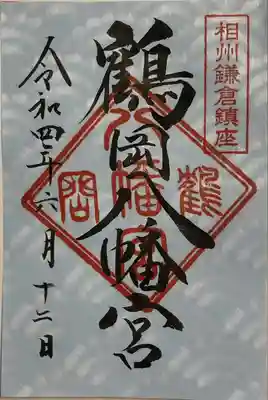 相州鎌倉鎮座
鶴岡八幡宮
令和四年六月十二日